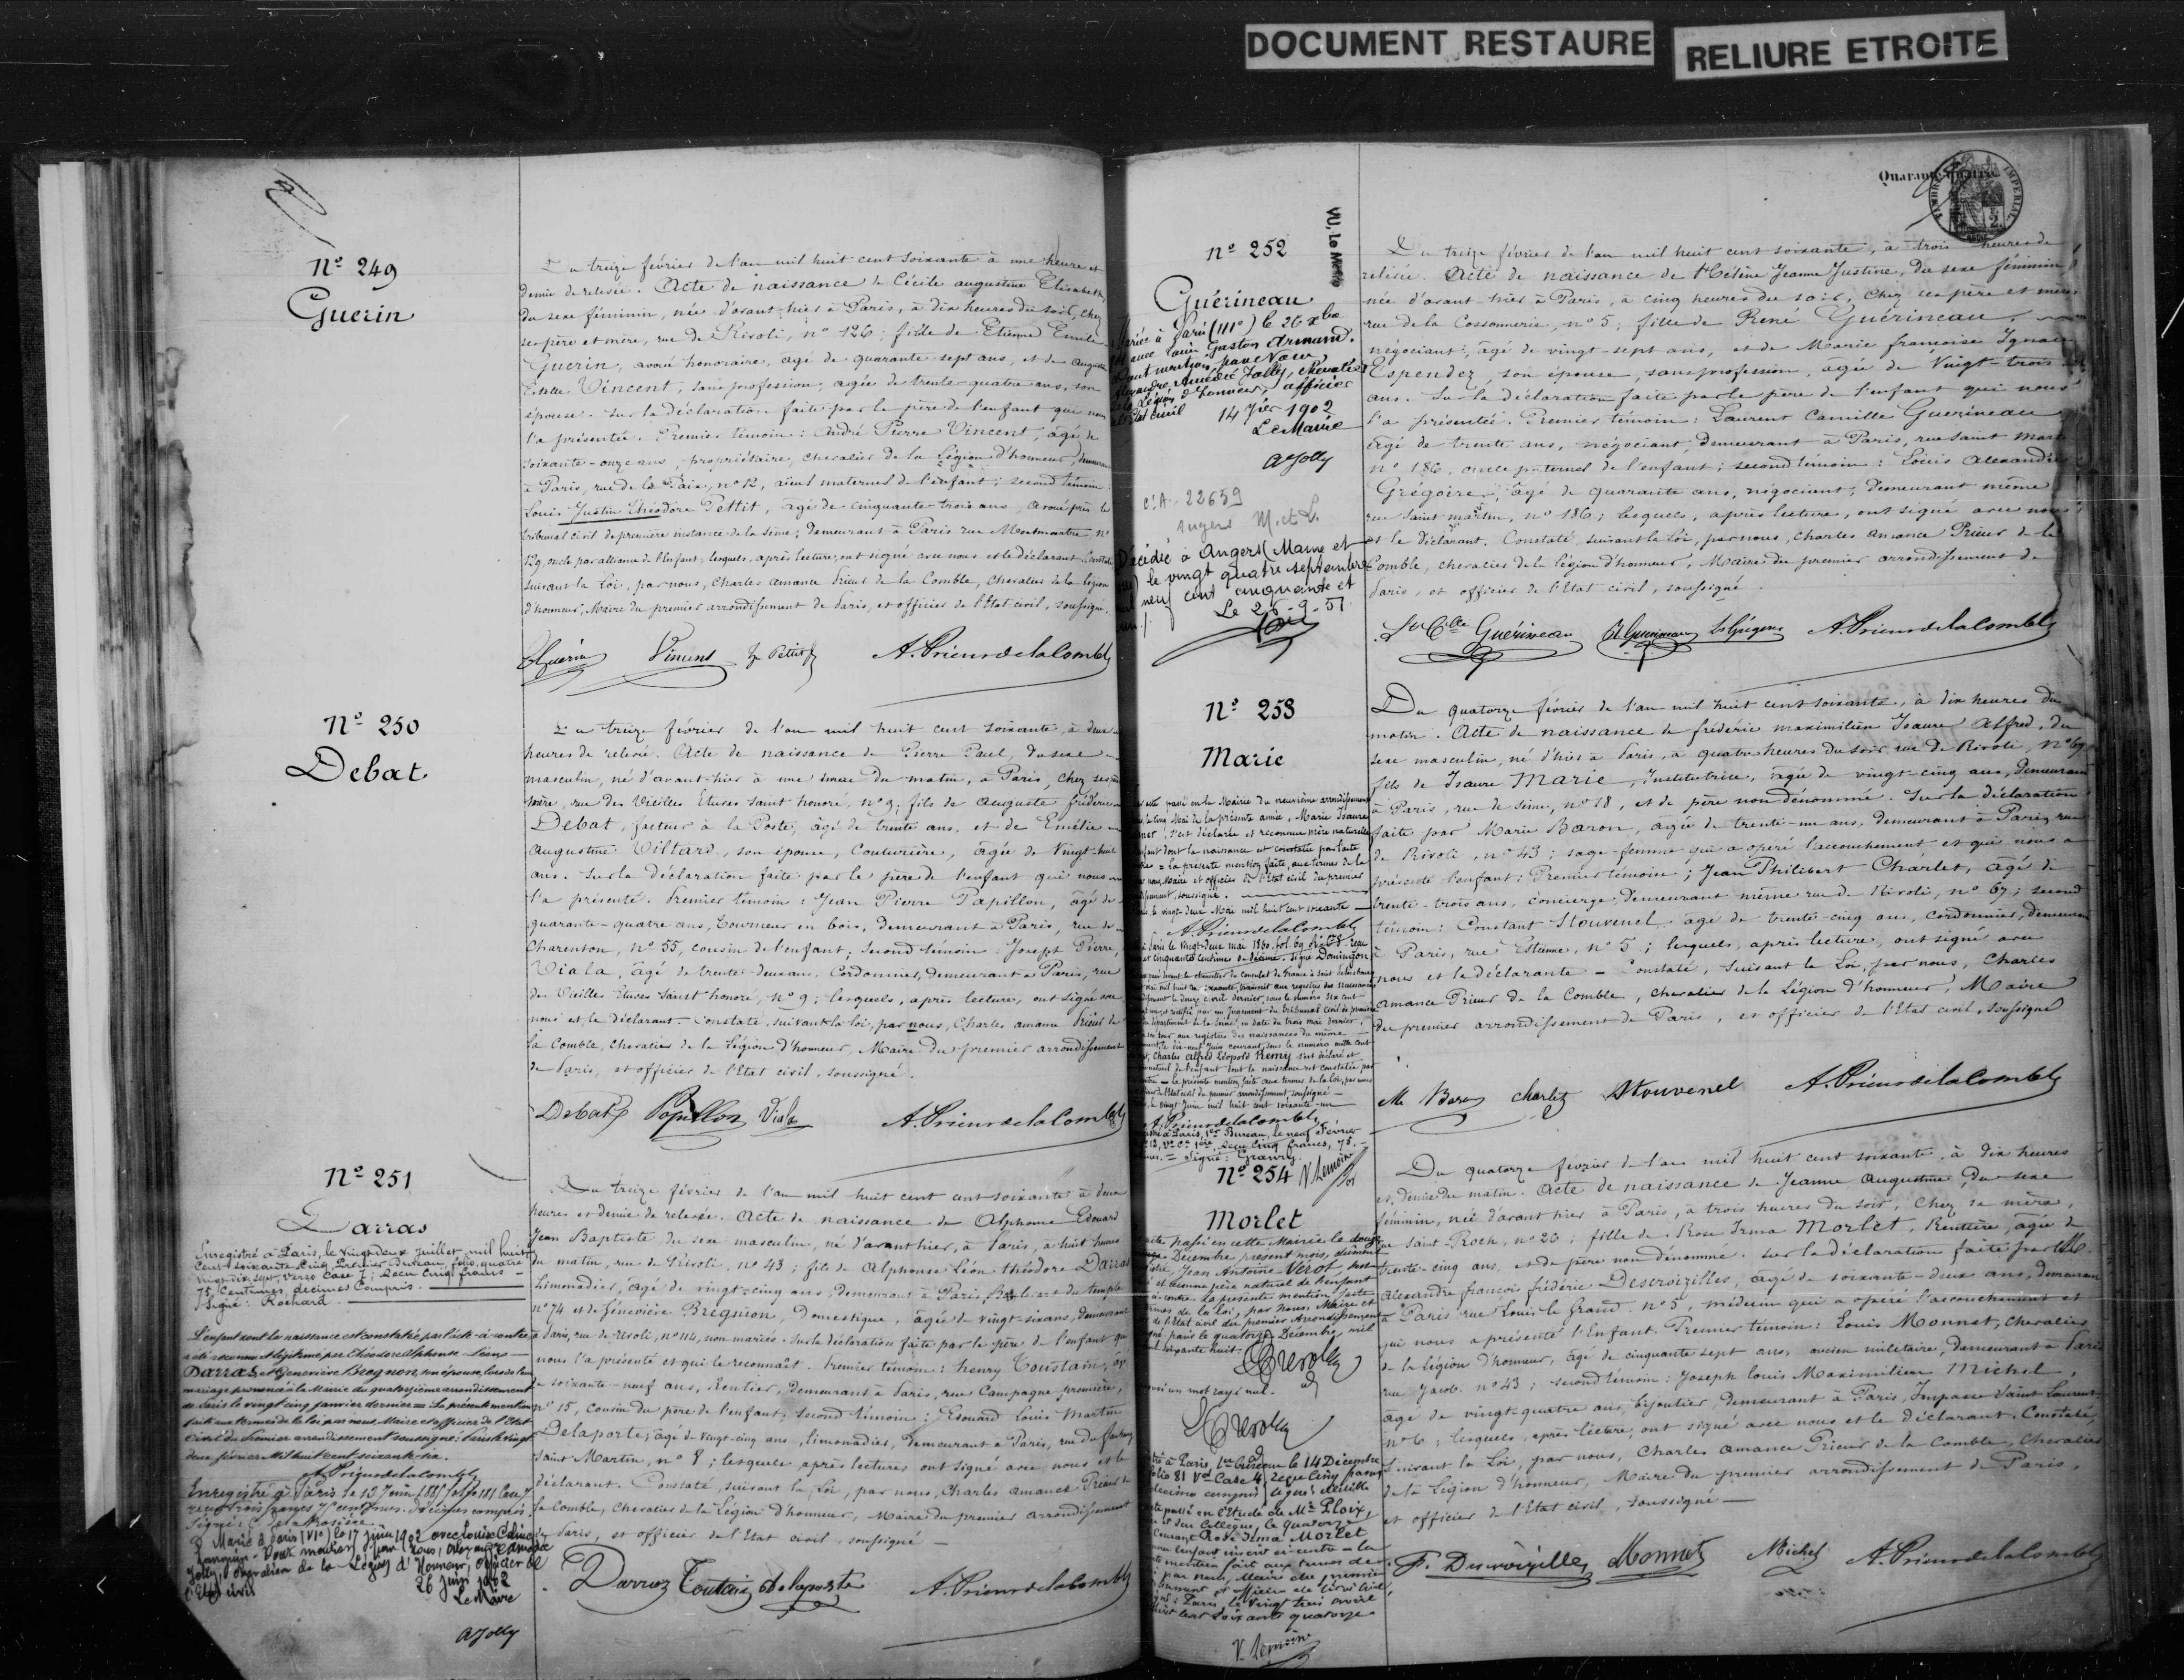 DOCUMENT RESTAURE
RELIURE ETROITE
Nº 249
Guerin
Du treize février de l'an mil huit cent soixante à une heure et
demie de relevée. Acte de naissance de Cécile augustine Elisabeth,
du sexe féminin, née d'avant-hier à Paris, à dix heures du soir, chez
ses père et mère, rue de Rivoli, nº 126; fille de Etienne Emile
Guerin, avoué honoraire, agé de quarante sept ans, et de Augustine
Estelle Vincent, sans profession, agée de trente-quatre ans, son
épouse. Sur la déclaration faite par le père de l'enfant qui nous
l'a présentée. Premier témoin: André Pierre Vincent, âgé de
soixante-onze ans, propriétaire, chevalier de la Légion d'honneur,
à Paris, rue de la Paix, nº 12, aïeul maternel de l'enfant; second témoin
Louis Justin Théodore Pettit, agé de cinquante-trois ans, avoué près le
tribunal civil de première instance de la Seine; demeurant à Paris rue Montmartre, nº
129, oncle par alliance de l'enfant; lesquels, après lecture, ont signé avec nous et le déclarant. Constaté
suivant la Loi, par nous, Charles amance Prieur de la Comble, chevalier de la légion
d'honneur, Maire du premier arrondissement de Paris, et officier de l'Etat civil, soussigné.
Guerin Vincent Pettit A. Prieur de la Comble
Nº 250
Debat
Du treize février de l'an mil huit cent soixante, à deux
heures de relevée. Acte de naissance de Pierre Paul, du sexe
masculin, né d'avant-hier à une heure du matin, à Paris, chez ses père
mère, rue des Vieilles Etuves saint honoré, nº 9; fils de Auguste frédéric
Debat, facteur à la Poste, âgé de trente ans, et de Emélie
Augustine Villard, son épouse, Couturière, âgée de Vingt-huit
ans. Sur la déclaration faite par le père de l'enfant qui nous
l'a présenté. Premier témoin: Jean Pierre Papillon, âgé de
quarante-quatre ans, Tourneur en bois, demeurant à Paris, rue de
Charenton, nº 55, cousin de l'enfant; second témoin: Joseph Pierre,
Viala, âgé de trente-deux ans, Cordonnier, demeurant à Paris, rue
des Vieilles Etuves Saint honoré, nº 9; lesquels, après lecture, ont signé avec
nous et le déclarant. Constaté, suivant la loi, par nous, Charles amance Prieur de
la Comble, Chevalier de la Légion d'honneur, Maire du premier arrondissement
de Paris, et officier de l'Etat civil, soussigné.
Debat Papillon Viala A. Prieur de la Comble
Nº 251
Darras
Enregistré à Paris, le Vingt-deux Juillet, mil huit
Cent soixante cinq, Premier Bureau, folio quatre
vingt dix sept, Verso Case 7; Recu Cinq francs
75, Centimes, decimes Compris.
Signé: Rochard
L'enfant dont la naissance est constatée par l'acte ci-contre
a été reconnu et légitimé par Théodore Alphonse Léons
Darras et Geneviève Brognon, son épouse, lors de leur
mariage prononcé à la Mairie du quatorzième arrondissement
de Paris le vingt cinq janvier dernier = La présente mention
faite aux termes de la loi par nous Maire et officier de l'Etat
Civil du Premier arrondissement soussigné: Paris le vingt
deux février Mil huit cent soixante six.
A. Prieur de la Comble
Enregistré à Paris le 13 Juin 1885
reçu trois francs 75 centimes. Décimes compris.
Marié à Paris (VIe) le 17 juin 1902 avec Louise
Jolly, Chevalier de la Légion d'Honneur, officier de
l'Etat civil
26 juin 1902
Le Maire
A Jolly
Du treize février de l'an mil huit cent cent soixante à deux
heures et demie de relevée. Acte de naissance de Alphonse Edouard
Jean Baptiste du sexe masculin, né d'avant hier, à Paris, à huit heures
du matin, rue de Rivoli, nº 43; fils de Alphonse Léon théodore Darras
Limonadier, âgé de vingt-cinq ans, demeurant à Paris, du temple
nº 74 et de Géneviève Brégnion, Domestique, âgée de vingt-six ans, demeurant
à Paris, rue de Rivoli, nº 114, non mariés. Sur la déclaration faite par le père de l'enfant qui
nous l'a présenté et qui le reconnaît. Premier témoin: henry Toustain, âgé
de soixante-neuf ans, Rentier, demeurant à Paris, rue Campagne première,
nº 15, cousin du père de l'enfant, second témoin: Edouard Louis Martin
Delaporte, âgé de vingt-cinq ans, limonadier, demeurant à Paris, rue du faubourg
Saint Martin, nº 8; lesquels après lecture ont signé avec nous et le
déclarant. Constaté, suivant la Loi, par nous, Charles amance Prieur de
la Comble, Chevalier de la Légion d'honneur, Maire du premier arrondissement
de Paris, et officier de l'Etat civil, soussigné
Darras Toutain Delaporte A. Prieur de la Comble
Quarante quatre
TIMBRE IMPERIAL
Nº 252
Guérineau
Mariée à Paris (IIIe) le 26 xbre
Louis Gaston Armand.
Amédée Jolly, Chevalier
de la Légion d'honneur, officier
de l'Etat civil
14 Jer 1902
Le Maire
A Jolly
C.A. 22659
Angers M. et L.
Décédée à Angers (Maine et
le vingt quatre septembre
mil neuf cent cinquante et
un.
Le 26-9-51
Du treize février de l'an mil huit cent soixante, à trois heures de
relevée. Acte de naissance de Hélène Jeanne Justine, du sexe féminin,
née d'avant-hier à Paris, à cinq heures du soir, chez ses père et mère
rue de la Cossonnerie, nº 5; fille de René Guérineau,
négociant, âgé de vingt-sept ans, et de Marie françoise Ignace
Espendez, son épouse, sans profession, âgée de Vingt-trois
ans. Sur la déclaration faite par le père de l'enfant qui nous
l'a présentée. Premier témoin: Laurent Camille Guerineau
âgé de trente ans, négociant, demeurant à Paris, rue saint Martin
nº 186, oncle paternel de l'enfant; second témoin: Louis Alexandre
Grégoire, âgé de quarante ans, négociant, demeurant même
rue Saint-martin, nº 186; lesquels, après lecture, ont signé avec nous
et le déclarant. Constaté, suivant la Loi, par nous, Charles amance Prieur de la
Comble, chevalier de la légion d'honneur, Maire du premier arrondissement de
Paris, et officier de l'Etat civil, soussigné.
Guérineau Guerineau A. Prieur de la Comble
Nº 253
Marie
passé en la Mairie du neuvième arrondissement
le cinq Mai de la présente année, Marie Isaure
s'est déclarée et reconnue mère naturelle
enfant dont la naissance est constatée par l'acte
= La présente mention faite, aux termes de la
par nous, Maire et officier de l'Etat civil du premier
soussigné.
le vingt-deux Mai mil huit cent soixante
A. Prieur de la Comble
Paris le vingt-deux mai 1860
Charles Alfred Léopold Remy s'est déclaré et
la présente mention faite aux termes de la loi, par nous
le vingt Juin mil huit cent soixante-un
A. Prieur de la Comble
Du quatorze février de l'an mil huit cent soixante, à dix heures du
matin. Acte de naissance de frédéric maximilien Isaure Alfred, du
sexe masculin, né d'hier à Paris, à quatre heures du soir, rue de Rivoli, nº 67
fils de Isaure Marie, Institutrice, âgée de vingt-cinq ans, demeurant
à Paris, rue de Seine, nº 18, et de père non dénommé. Sur la déclaration
faite par Marie Baron, âgée de trente-un ans, demeurant à Paris, rue
de Rivoli, nº 43; sage-femme qui a opéré l'accouchement et qui nous a
présenté l'enfant; Premier témoin; Jean Philibert Charlet, âgé de
trente-trois ans, concierge, demeurant même rue de Rivoli, nº 67; second
témoin: Constant Stouvenel, âgé de trente-cinq ans, cordonnier, demeurant
à Paris, rue Estienne, nº 5; lesquels, après lecture, ont signé avec
nous et la déclarante - Constaté, suivant la Loi, par nous, Charles
amance Prieur de la Comble, chevalier de la Légion d'honneur, Maire
du premier arrondissement de Paris, et officier de l'Etat civil, soussigné
Me Baron Charlet Stouvenel A. Prieur de la Comble
Nº 254
V. Lemoine
Morlet
acte passé en cette Mairie le douze
Décembre présent mois,
Jean Antoine Verot
père naturel de l'enfant
ci-contre. La présente mention faite
termes de la Loi, par nous, Maire et
de l'Etat civil du premier Arrondissement
Paris le quatorze Décembre mil
soixante huit.
un mot rayé nul.
à Paris, 1er Bureau le 14 Décembre
passé en l'Etude de Me Ploix,
et son Collègue, le quatorze
Courant Rose Irma Morlet
mention faite aux termes de
par nous, Maire du premier
Paris, le vingt trois avril
huit cent soixante quatorze
V. Lemoine
Du quatorze février de l'an mil huit cent soixante, à dix heures
et demie du matin. Acte de naissance de Jeanne Augustine, du sexe
féminin, née d'avant hier à Paris, à trois heures du soir, chez sa mère,
rue Saint-Roch, nº 26; fille de Rose Irma Morlet, Rentière, âgée de
trente-cinq ans, et de père non dénommé. Sur la déclaration faite par M.
Alexandre françois frédéric Descroizilles, âgé de soixante-deux ans, demeurant
à Paris rue Louis le Grand, nº 5, médecin qui a opéré l'accouchement et
qui nous a présenté l'Enfant. Premier témoin: Louis Monnet, chevalier
de la légion d'honneur, âgé de cinquante sept ans, ancien militaire, demeurant à Paris
rue Jacob, nº 43; second témoin: Joseph Louis Maximilien Michel,
âgé de vingt-quatre ans, bijoutier, demeurant à Paris, Impasse Saint Laurent
nº 6; lesquels, après lecture, ont signé avec nous et le déclarant. Constaté,
suivant la Loi, par nous, Charles amance Prieur de la Comble, Chevalier
de la Légion d'honneur, Maire du premier arrondissement de Paris,
et officier de l'Etat civil, soussigné
F. Descroizilles Monnet Michel A. Prieur de la Comble